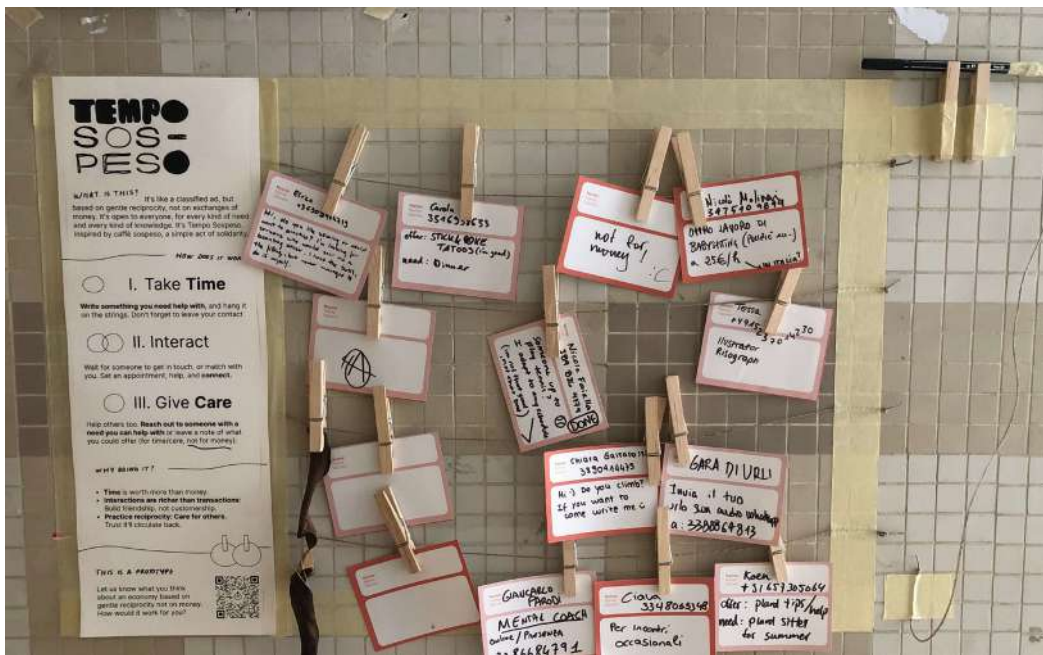 TEMPO
SOS-
PESO
WHAT IS THIS?
It's like a classified ad, but
based on gentle reciprocity, not on exchanges of
money. It's open to everyone, for every kind of need
and every kind of knowledge. It's Tempo Sospeso,
inspired by caffè sospeso, a simple act of solidarity.
HOW DOES IT WORK
I. Take Time
Write something you need help with, and hang it
on the strings. Don't forget to leave your contact
II. Interact
Wait for someone to get in touch, or match with
you. Set an appointment, help, and connect.
III. Give Care
Help others too. Reach out to someone with a
need you can help with or leave a note of what
you could offer (for time/care, not for money).
WHY DOING IT?
• Time is worth more than money.
• Interactions are richer than transactions:
Build friendship, not customership.
• Practice reciprocity: Care for others.
Trust it'll circulate back.
THIS IS A PROTOTYPE
Let us know what you think
about an economy based on
gentle reciprocity not on money.
How would it work for you?
Hi, do you like sewing or would
Carola
offer: STICK&POKE
TATOOS (im good)
need: Dinner
not for
money :C
Nicolò
OFFRO LAVORO DI
BABYSITTING
a 25€/h
IN ITALIA?
A
Nicola
389
Someone up to
play tennis?
I adapt to any schedule
(im not that good)
DONE
Tessa
Illustrator
Risograph
Chiara
3890414473
Hi :) Do you climb?
If you want to
come write me
GARA DI URLI
Invia il tuo
urlo su un audio whatsapp
a: 3398864813
GIANCARLO
PARODI
MENTAL COACH
online/PRESENZA
Ciara
3348065348
Per incontri
occasionali
Koen
+31657305064
offer: plant tips/help
need: plant sitter
for summer